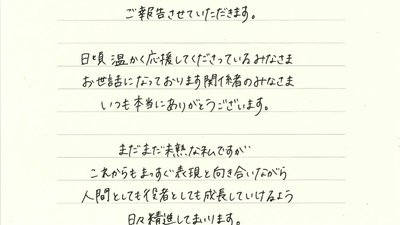 ご報告させていただきます。
日頃 温かく応援してくださっているみなさま
お世話になっております関係者のみなさま
いつも本当にありがとうございます。
まだまだ未熟な私ですが
これからもまっすぐ表現と向き合いながら
人間としても役者としても成長していけるよう
日々精進してまいります。